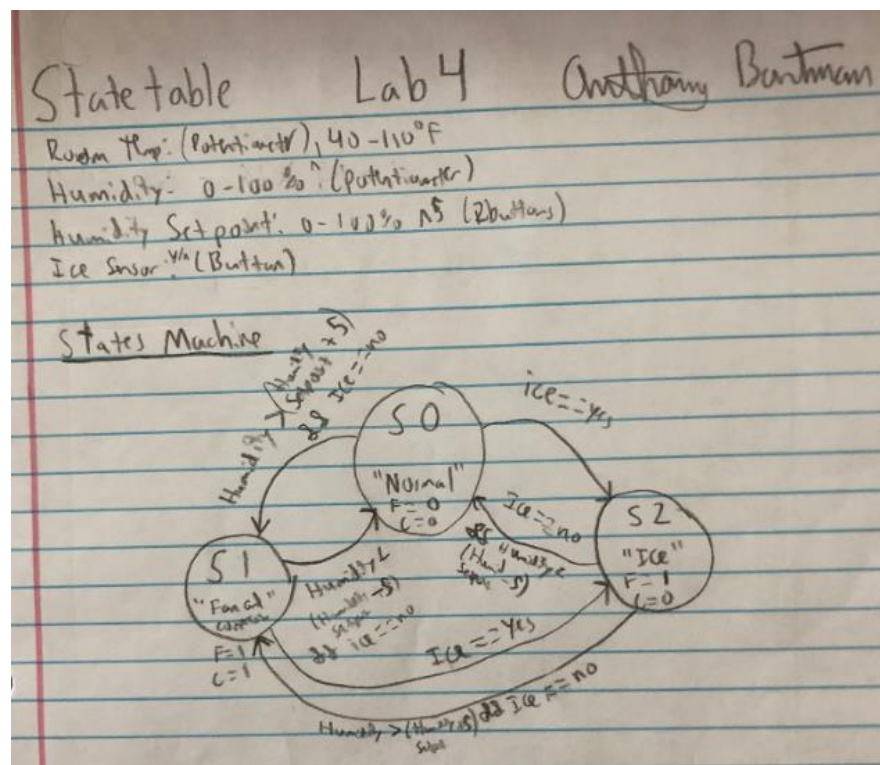 State table Lab 4 Anthony Bartman
Room Temp: (Potentiometer), 40-110°F
Humidity: 0-100% (potentiometer)
Humidity Setpoint: 0-100% (2buttons)
Ice Sensor: y/n (Button)
States Machine
Humidity > (Humidity Setpoint + 5)
&& Ice == no
ice == yes
S0
"Normal"
F = 0
C = 0
Ice == no
&& Humidity <
(Humid
Setpoint - 5)
S2
"Ice"
F = 1
C = 0
S1
"Fan and
F = 1
C = 1
Humidity <
(Humidity - 5)
Setpoint
&& ice == no
Ice == Yes
Humidity > (Humidity + 5) && Ice == no
Setpoint